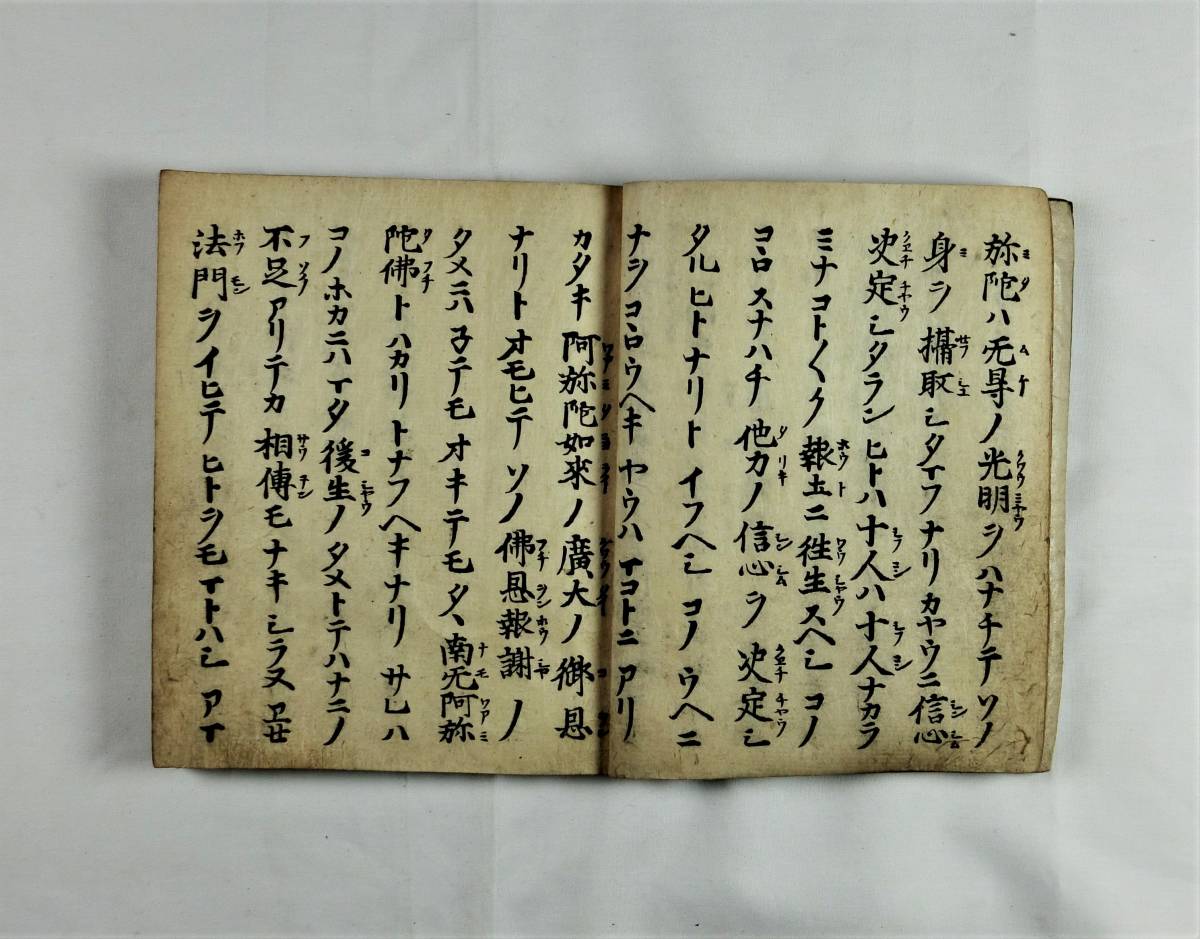 弥陀ハ无㝵ノ光明ヲハナチテソノ
身ヲ攝取シタマフナリカヤウニ信心
决定シタランヒトハ十人ハ十人ナカラ
ミナコト〱ク報土ニ徃生スヘシコノ
コヽロスナハチ他力ノ信心ヲ决定シ
タルヒトナリトイフヘシコノウヘニ
ナヲコヽロウヘキヤウハマコトニアリ
カタキ阿弥陀如來ノ廣大ノ御恩
ナリトオモヒテソノ佛恩報謝ノ
タメニハ子テモオキテモタヽ南无阿弥
陀佛トハカリトナフヘキナリサレハ
コノホカニハマタ後生ノタメトテハナニノ
不足アリテカ相傳モナキシラヌヱセ
法門ヲイヒテヒトヲモマトハシアマ